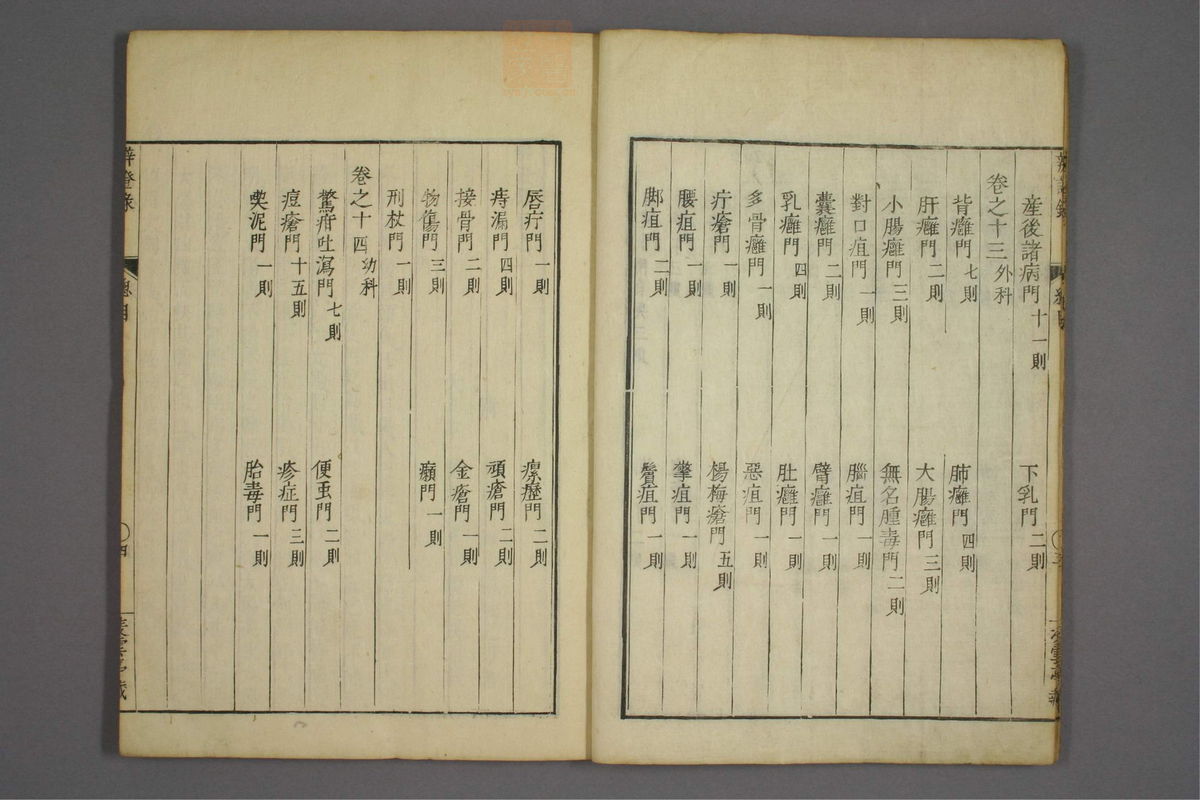 産後諸病門十一則 下乳門二則
卷之十三外科
背癰門七則 肺癰門四則
肝癰門二則 大腸癰門三則
小腸癰門三則 無名腫毒門二則
對口疽門一則 腦疽門一則
囊癰門二則 臂癰門一則
乳癰門四則 肚癰門一則
多骨癰門一則 惡疽門一則
疔瘡門一則 楊梅瘡門五則
腰疽門一則 擎疽門一則
脚疽門二則 鬢疽門一則
唇疔門一則 瘰癧門二則
痔漏門四則 頑瘡門二則
接骨門二則 金瘡門一則
物傷門三則 癩門一則
刑杖門一則
卷之十四幼科
驚疳吐瀉門七則 便虫門二則
痘瘡門十五則 疹症門三則
喫泥門一則 胎毒門一則
辨證錄 總目 四